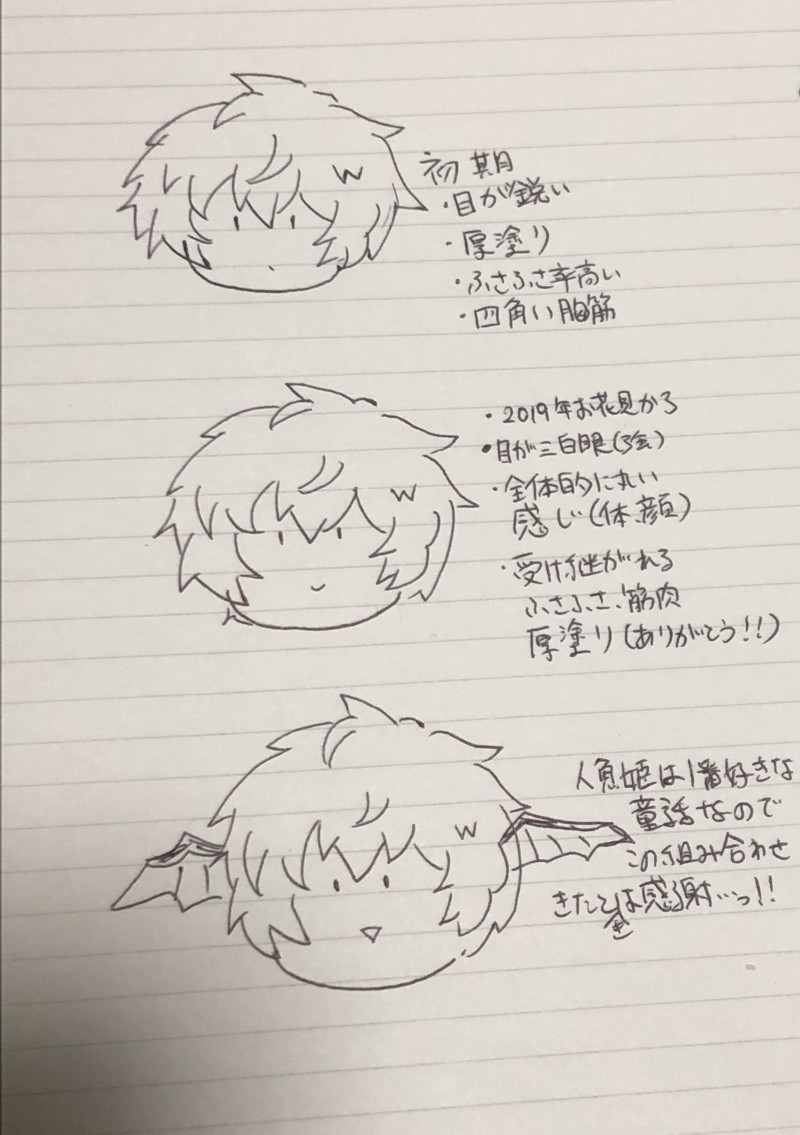 初期
・目が鋭い
・厚塗り
・ふさふさ率高い
・四角い胸筋
・2019年お花見から
・目が三白眼(強)
・全体的に丸い
感じ(体、顔)
・受け継がれる
ふさふさ、筋肉
厚塗り(ありがとう!!)
人魚姫は1番好きな
童話なので
この組み合わせ
きたときは感謝…っ!!
w
w
w